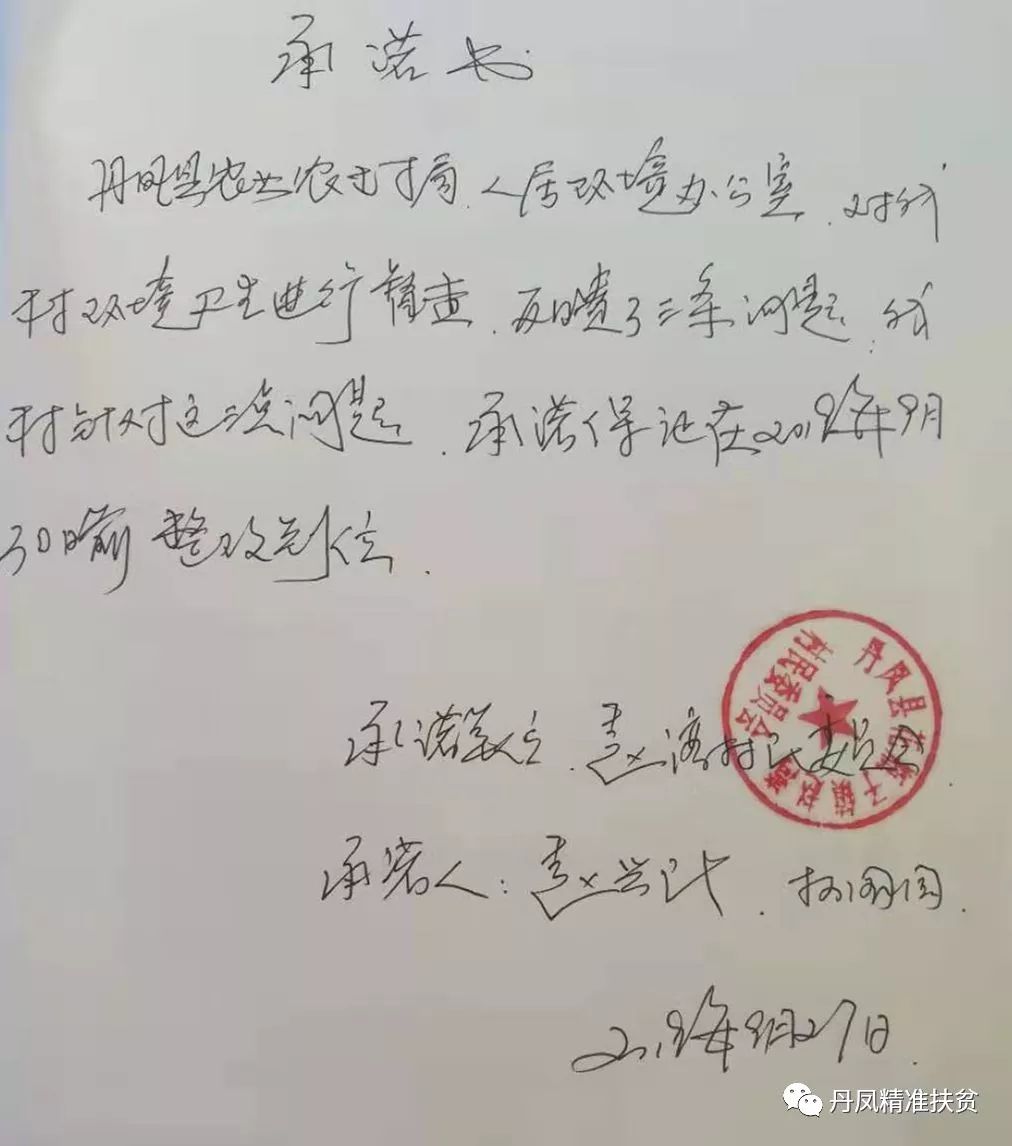 承诺书
丹凤县农业农村局人居环境办公室,对我
村环境卫生进行督查,反馈了三条问题,我
村针对这三点问题,承诺保证在2019年9月
30日前整改到位.
承诺单位:赵湾村民委员会
承诺人:赵兴
2019年9月27日.
丹凤县花瓶子镇赵湾村民委员会
丹凤精准扶贫